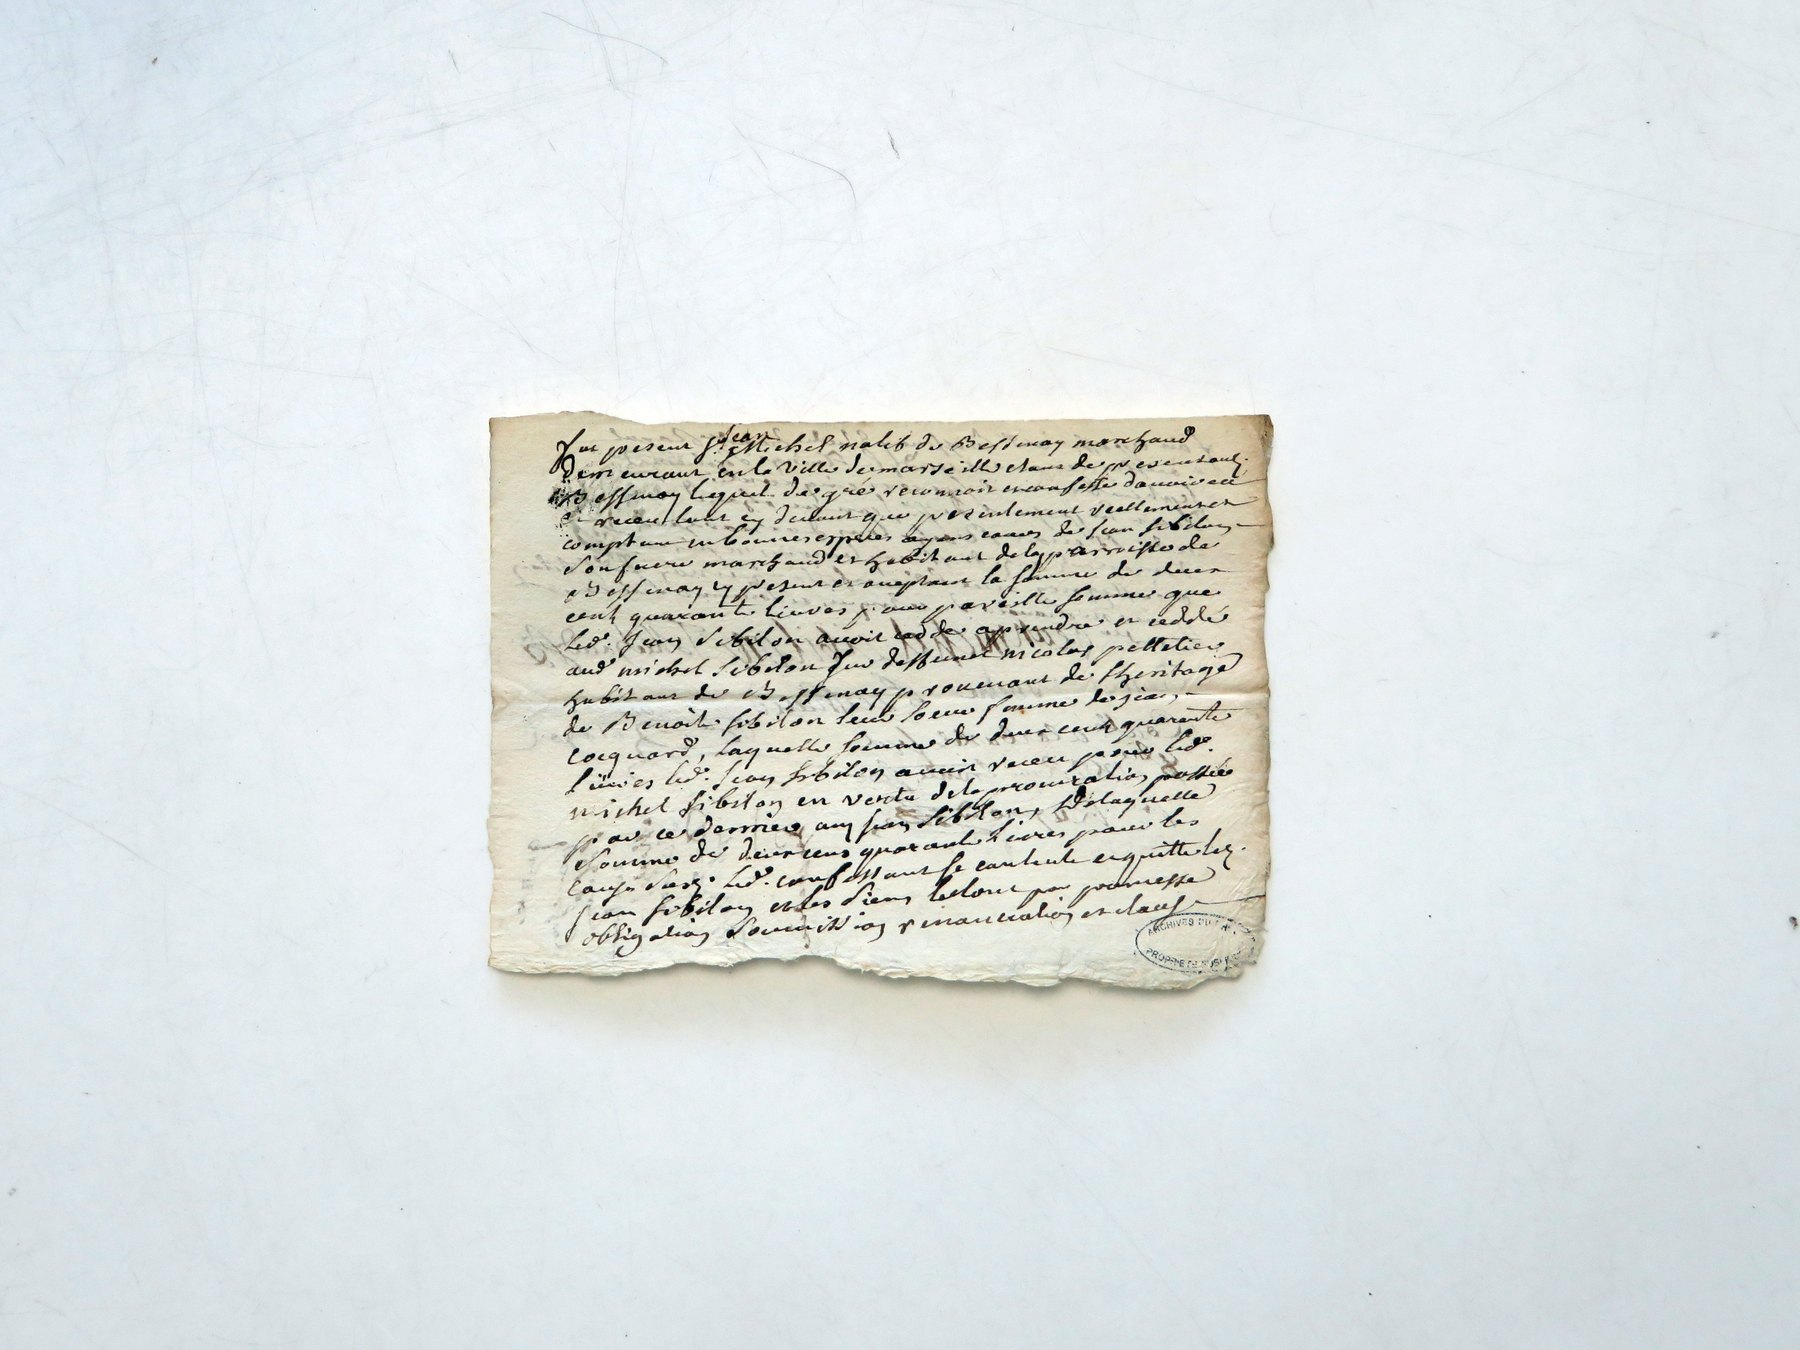 fut present sr. Jean Michel natif de Bessenay marchand
demeurant en la Ville de marseille etant de present aud.
Bessenay lequel de gré reconnoit et confesse d'auoir eu
et receu tant cy deuant que presentement reellement et
comptant en bonnes especes ayans cours de Jean sibilon
son frere marchand et habitant de la parroisse de
Bessenay cy present et acceptant la somme de deux
cent quarante liures pour pareille somme que
led. Jean Sibilon auoit cedde a prendre et ceddé
aud michel sibilon sur deffunct nicolas pelletier
habitant de Bessenay prouenant de l'heritage
de Benoite sibilon leur soeur femme de
cocquard, laquelle somme de deux cent quarante
liures led. Jean sibilon auoit receu pour led.
michel sibilon en vertu de la procuration passée
par ce dernier aud Jean Sibilon, de laquelle
somme de deux cens quarante liures pour les
causes susd. led. confessant se contente et quitte led.
Jean sibilon et les siens le tout par promesse
obligation soumission renonciation et clause
ARCHIVES DU
PROPRIÉTÉ PUBLIQUE